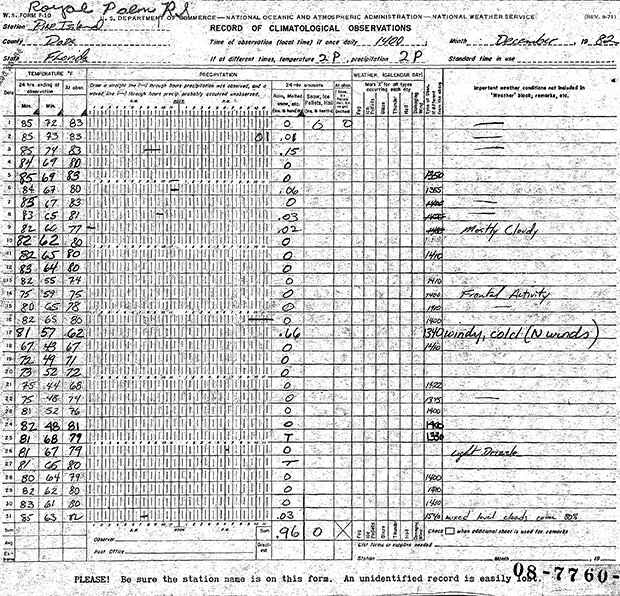 Royal Palm RS
W.S. FORM F-10 U.S. DEPARTMENT OF COMMERCE—NATIONAL OCEANIC AND ATMOSPHERIC ADMINISTRATION—NATIONAL WEATHER SERVICE (REV. 9-71)
Station
RECORD OF CLIMATOLOGICAL OBSERVATIONS
County Dade Time of observation (local time) if once daily 1400 Month December, 19 82
State Florida If at different times, temperature 2 P, precipitation 2 P Standard time in use
TEMPERATURE °F PRECIPITATION WEATHER (CALENDAR DAY)
24 hrs. ending at observation At obsn. Draw a straight line (—) through hours precipitation was observed, and a waved line through hours precip. probably occurred unobserved. 24-hr. amounts At obsn. Mark 'X' for all types occurring each day Important weather conditions not included in 'Weather' block, remarks, etc.
Date Max. Min. A.M. NOON P.M. Rain, Melted snow, etc. (Ins. & hundths) Snow, Ice Pellets, Hail (Ins. & tenths) Fog Ice Pellets Glaze Thunder Hail Damaging Wind
1 85 72 83 0 0 0
2 85 73 83 01 .01
3 85 74 83 .15
4 84 69 80 0
5 85 69 83 0 1350
6 84 67 80 .06 1355
7 85 67 83 0 1400
8 83 65 81 .03
9 82 66 77 .02 Mostly Cloudy
10 82 62 80 0
11 82 65 80 0 1410
12 83 64 80 0
13 82 55 74 0 1410
14 75 59 75 0 1400 Frontal Activity
15 80 65 78 0
16 82 65 80 0 1400
17 81 57 62 .66 1340 windy, cold (N winds)
18 67 43 67 0 1410
19 72 49 71 0
20 73 52 72 0
21 75 44 68 0 1422
22 75 48 74 0 1375
23 81 52 76 0 1400
24 82 48 81 0 1400
25 81 68 79 T 1330
26 81 67 79 0 Light Drizzle
27 81 66 80 T
28 80 64 79 0 1400
29 82 62 80 0 1400
30 83 61 80 0 1410
31 85 63 82 .03 1540 mixed level clouds cover 80%
Sum A.M. NOON P.M. Sum .96 0 X Fog Ice Pellets Glaze Thunder Hail Damaging Wind Check when additional sheet is used for remarks
Avg. Observer List forms or supplies needed
Post Office Station Month 19
PLEASE! Be sure the station name is on this form. An unidentified record is easily lost. 08-7760-